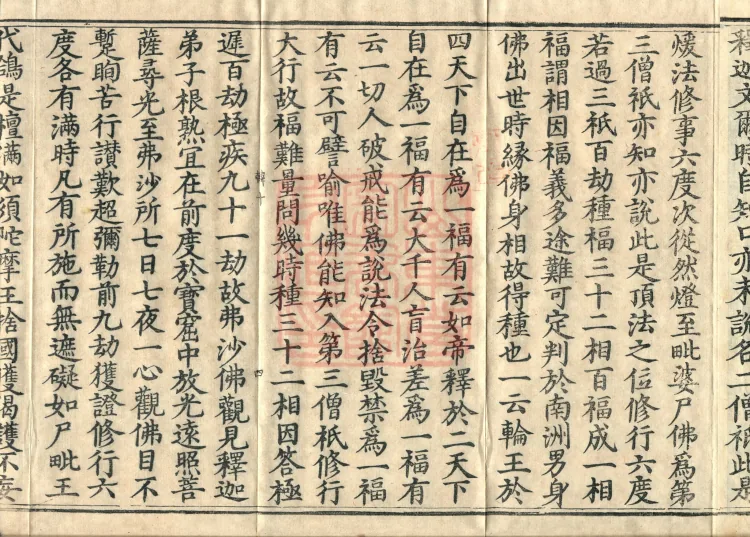 釋迦文爾時自知口亦未說名二僧祇此是
煖法修事六度次從然燈至毗婆尸佛爲第
三僧祇亦知亦說此是頂法之位修行六度
若過三祇百劫種福三十二相百福成一相
福謂相因福義多途難可定判於南洲男身
佛出世時緣佛身相故得種也一云輪王於
四天下自在爲一福有云如帝釋於二天下
自在爲一福有云大千人盲治差爲一福有
云一切人破戒能爲說法令捨毀禁爲一福
有云不可譬喻唯佛能知入第三僧祇修行
大行故福難量問幾時種三十二相因答極
遲百劫極疾九十一劫故弗沙佛觀見釋迦
弟子根熟宜在前度於寶窟中放光遠照菩
薩尋光至弗沙所七日七夜一心觀佛目不
蹔眴苦行讃歎超彌勒前九劫獲證修行六
度各有滿時凡有所施而無遮礙如尸毗王
代鴿是檀滿如須陀摩王捨國獲偈護不妄